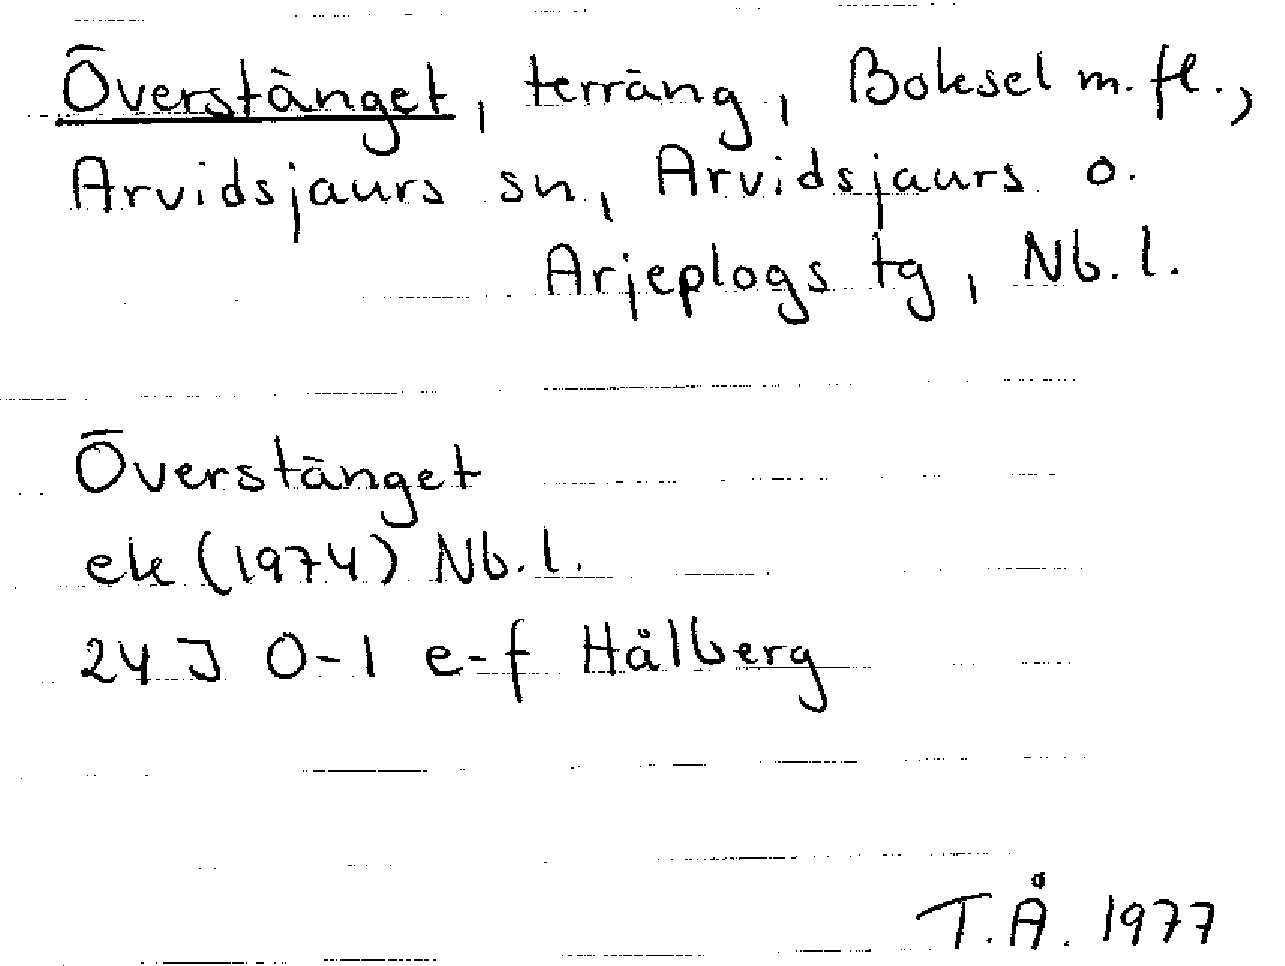 Överstänget, terräng, Boksel m. fl.,
Arvidsjaurs sn, Arvidsjaurs o.
Arjeplogs tg, Nb. l.
Överstänget
ek (1974) Nb. l.
24 J 0-1 e-f Hålberg
T.Å. 1977